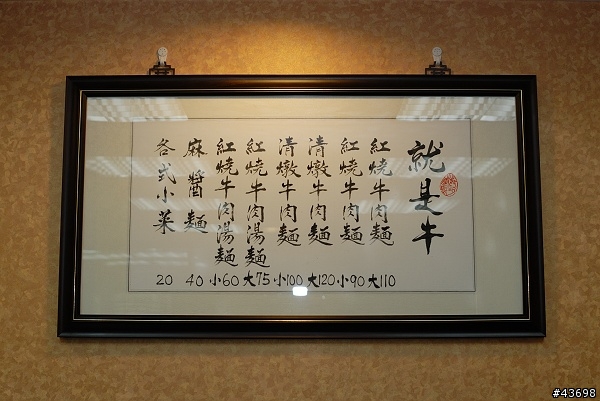 就是牛
紅燒牛肉麵 大110
紅燒牛肉麵 小90
清燉牛肉麵 大120
清燉牛肉麵 小100
紅燒牛肉湯麵 大75
紅燒牛肉湯麵 小60
麻醬麵 40
各式小菜 20
#43698